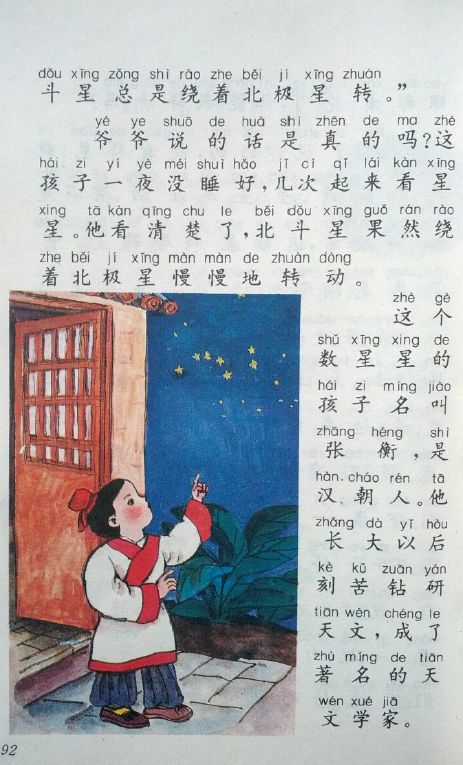 dǒu xīng zǒng shì rào zhe běi jí xīng zhuàn
斗星总是绕着北极星转。”
yé ye shuō de huà shì zhēn de ma zhè
爷爷说的话是真的吗?这
hái zi yí yè méi shuì hǎo jǐ cì qǐ lái kàn xīng
孩子一夜没睡好,几次起来看星
xing tā kàn qīng chu le běi dǒu xīng guǒ rán rào
星。他看清楚了,北斗星果然绕
zhe běi jí xīng màn màn de zhuàn dòng
着北极星慢慢地转动。
zhè gè
这个
shǔ xīng xing de
数星星的
hái zi míng jiào
孩子名叫
zhāng héng shì
张衡,是
hàn cháo rén tā
汉朝人。他
zhǎng dà yǐ hòu
长大以后
kè kǔ zuān yán
刻苦钻研
tiān wén chéng le
天文,成了
zhù míng de tiān
著名的天
wén xué jiā
文学家。
92